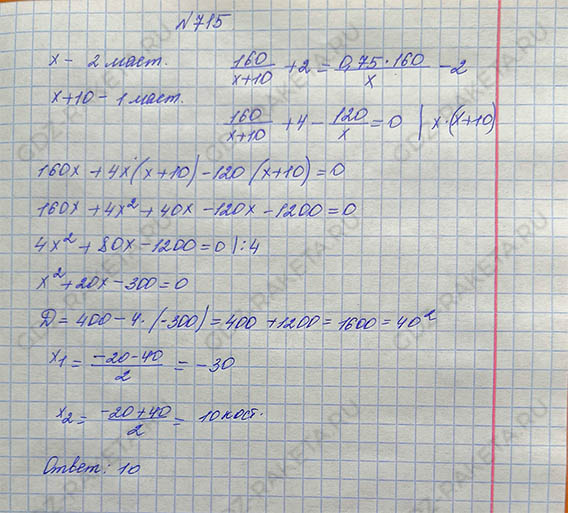 №715
x - 2 маст.
x+10 - 1 маст.
160/(x+10) + 2 = 0,75·160/x - 2
160/(x+10) + 4 - 120/x = 0 | x·(x+10)
160x + 4x(x+10) - 120(x+10) = 0
160x + 4x² + 40x - 120x - 1200 = 0
4x² + 80x - 1200 = 0 |:4
x² + 20x - 300 = 0
Д = 400 - 4·(-300) = 400 + 1200 = 1600 = 40²
x₁ = (-20-40)/2 = -30
x₂ = (-20+40)/2 = 10 кост.
Ответ: 10
GDZ-RAKETA.RU